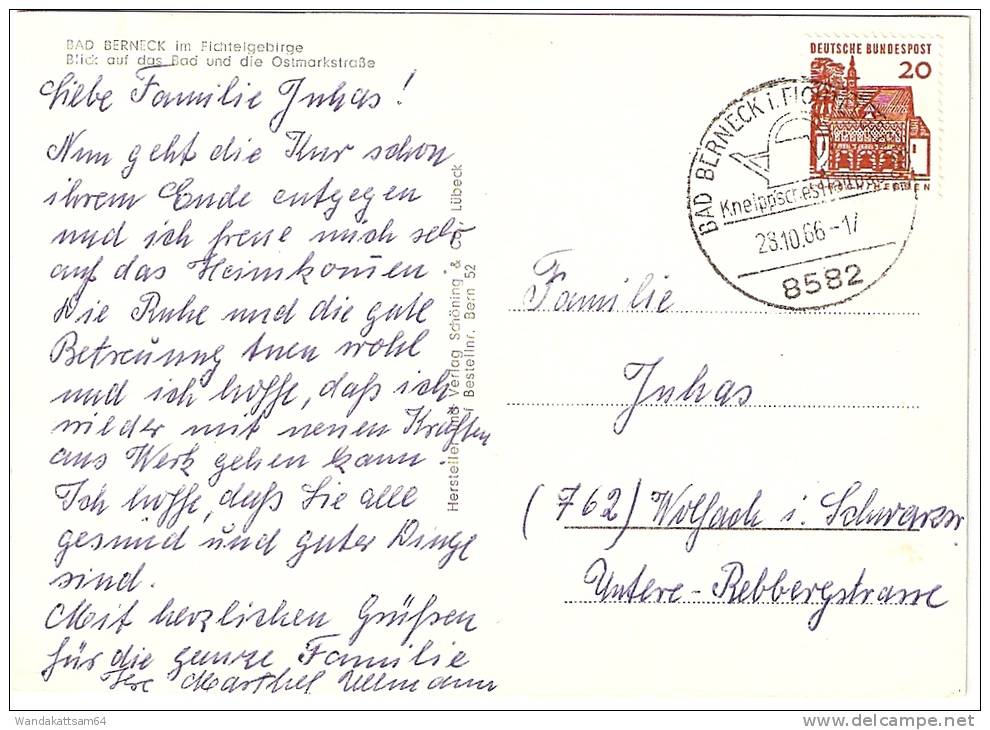 BAD BERNECK im Fichtelgebirge
Blick auf das Bad und die Ostmarkstraße
Liebe Familie Juhas!
Nun geht die Kur schon
ihrem Ende entgegen
und ich freue mich sehr
auf das Heimkommen.
Die Ruhe und die gute
Betreuung tuen wohl
und ich hoffe, daß ich
wieder mit neuen Kräften
ans Werk gehen kann.
Ich hoffe, daß Sie alle
gesund und guter Dinge
sind.
Mit herzlichen Grüßen
für die ganze Familie
Ihre Marthel Ullmann
Hersteller und Verlag Schöning & Co., Lübeck
Bestellnr. Bern 52
DEUTSCHE BUNDESPOST
20
BAD BERNECK i.
28.10.66-17
8582
Familie
Juhas
(762) Wolfach i. Schwarzw
Untere-Rebbergstrasse
Wandakattsam64
delcampe.net